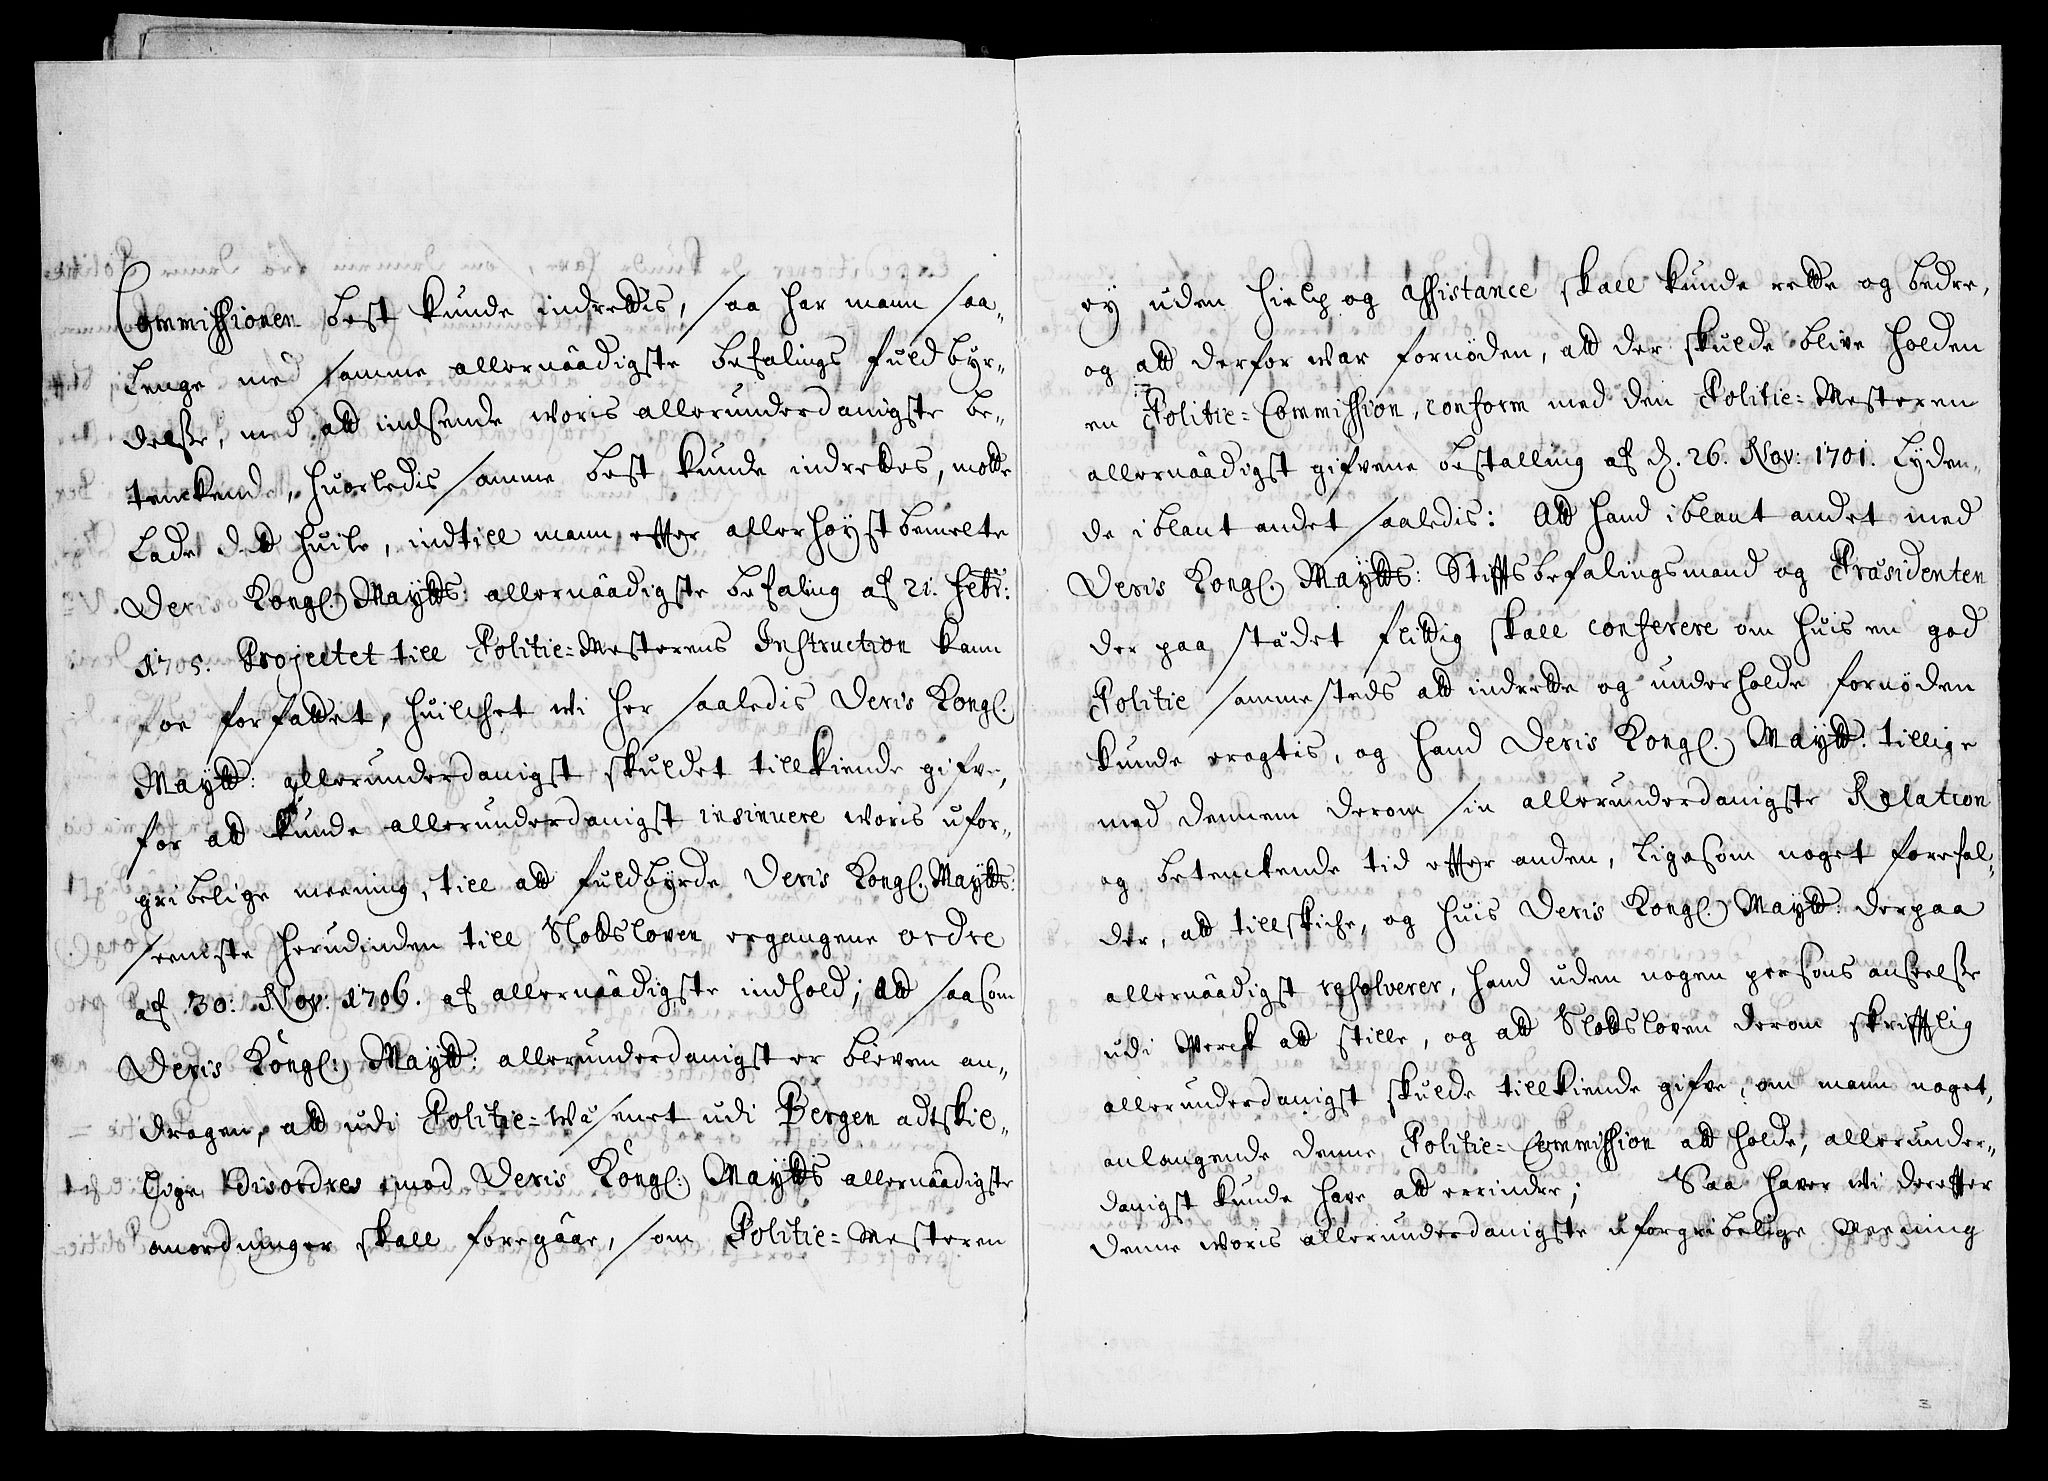 Commissionen best kunde indrettis, saa har mann saa-
lenge med samme allernåådigste befalings fuldbyr-
delsse, med att indsende woris allerunderdanigste be-
tenckende, huorledis samme best kunde indrettes, motte
lade dett huile, indtill mann effter allerhøyst bemelte
Deris Kongl. Maytts: allernåådigste befaling af 21. Febr:
1705. Projectet till Politie-Mesterens Instruction kann
foe forfattet, huilchet wi her saaledis Deris Kongl.
Maytt: allerunderdanigst skuldet tillkiende gifve,
for att kunde allerunderdanigst insinuere woris ufor-
gribelige meening, till att fuldbyrde Deris Kongl. Maytts:
seeniste herudinden till Slottsloven ergangene ordre
af 30: Nov: 1706. af allernåådigste indhold; Att saasom
Deris Kongl: Maytt: allerunderdanigst er bleven an-
dragen, att udi Politie-Wäsenet udi Bergen adtskil-
lige Disordres imod Deris Kongl: Maytts allernåådigste
anordninger skall foregåår, som Politie-Mesteren
ey uden hielp og assistance skall kunde rette og bedre,
og att derfor war fornöden, att der skulde blive holden
en Politie-Commission, conform med den Politie-Mesteren
allernåådigst gifvene bestalling af d. 26. Nov: 1701. lyden-
de iblant andet saaledis: Att hand iblant andet med
Deris Kongl. Maytts: Stifftsbefalingsmand og Præsidenten
der paa stædet flittig skall conferere om huis en god
Politie sammesteds att indrette og underholde fornöden
kunde eragtis, og hand Deris Kongl. Maytt: tillige
med dennem derom sin allerunderdanigste Relation
og betenckende tid effter anden, ligesom noget forefal-
der, att tillskicke, og huis Deris Kongl. Maytt: derpaa
allernåådigst resolverer, hand uden nogen persons anseelsse
udi Werck att stille, og att Slottsloven derom skrifftlig
allerunderdanigst skulde tillkiende gifve, om mann noget,
anlangende denne Politie-Commission att holde, allerunder-
danigst kunde have att errindre; Saa haver wi dereffter
denne woris allerunderdanigste uforgribelige Meening
3